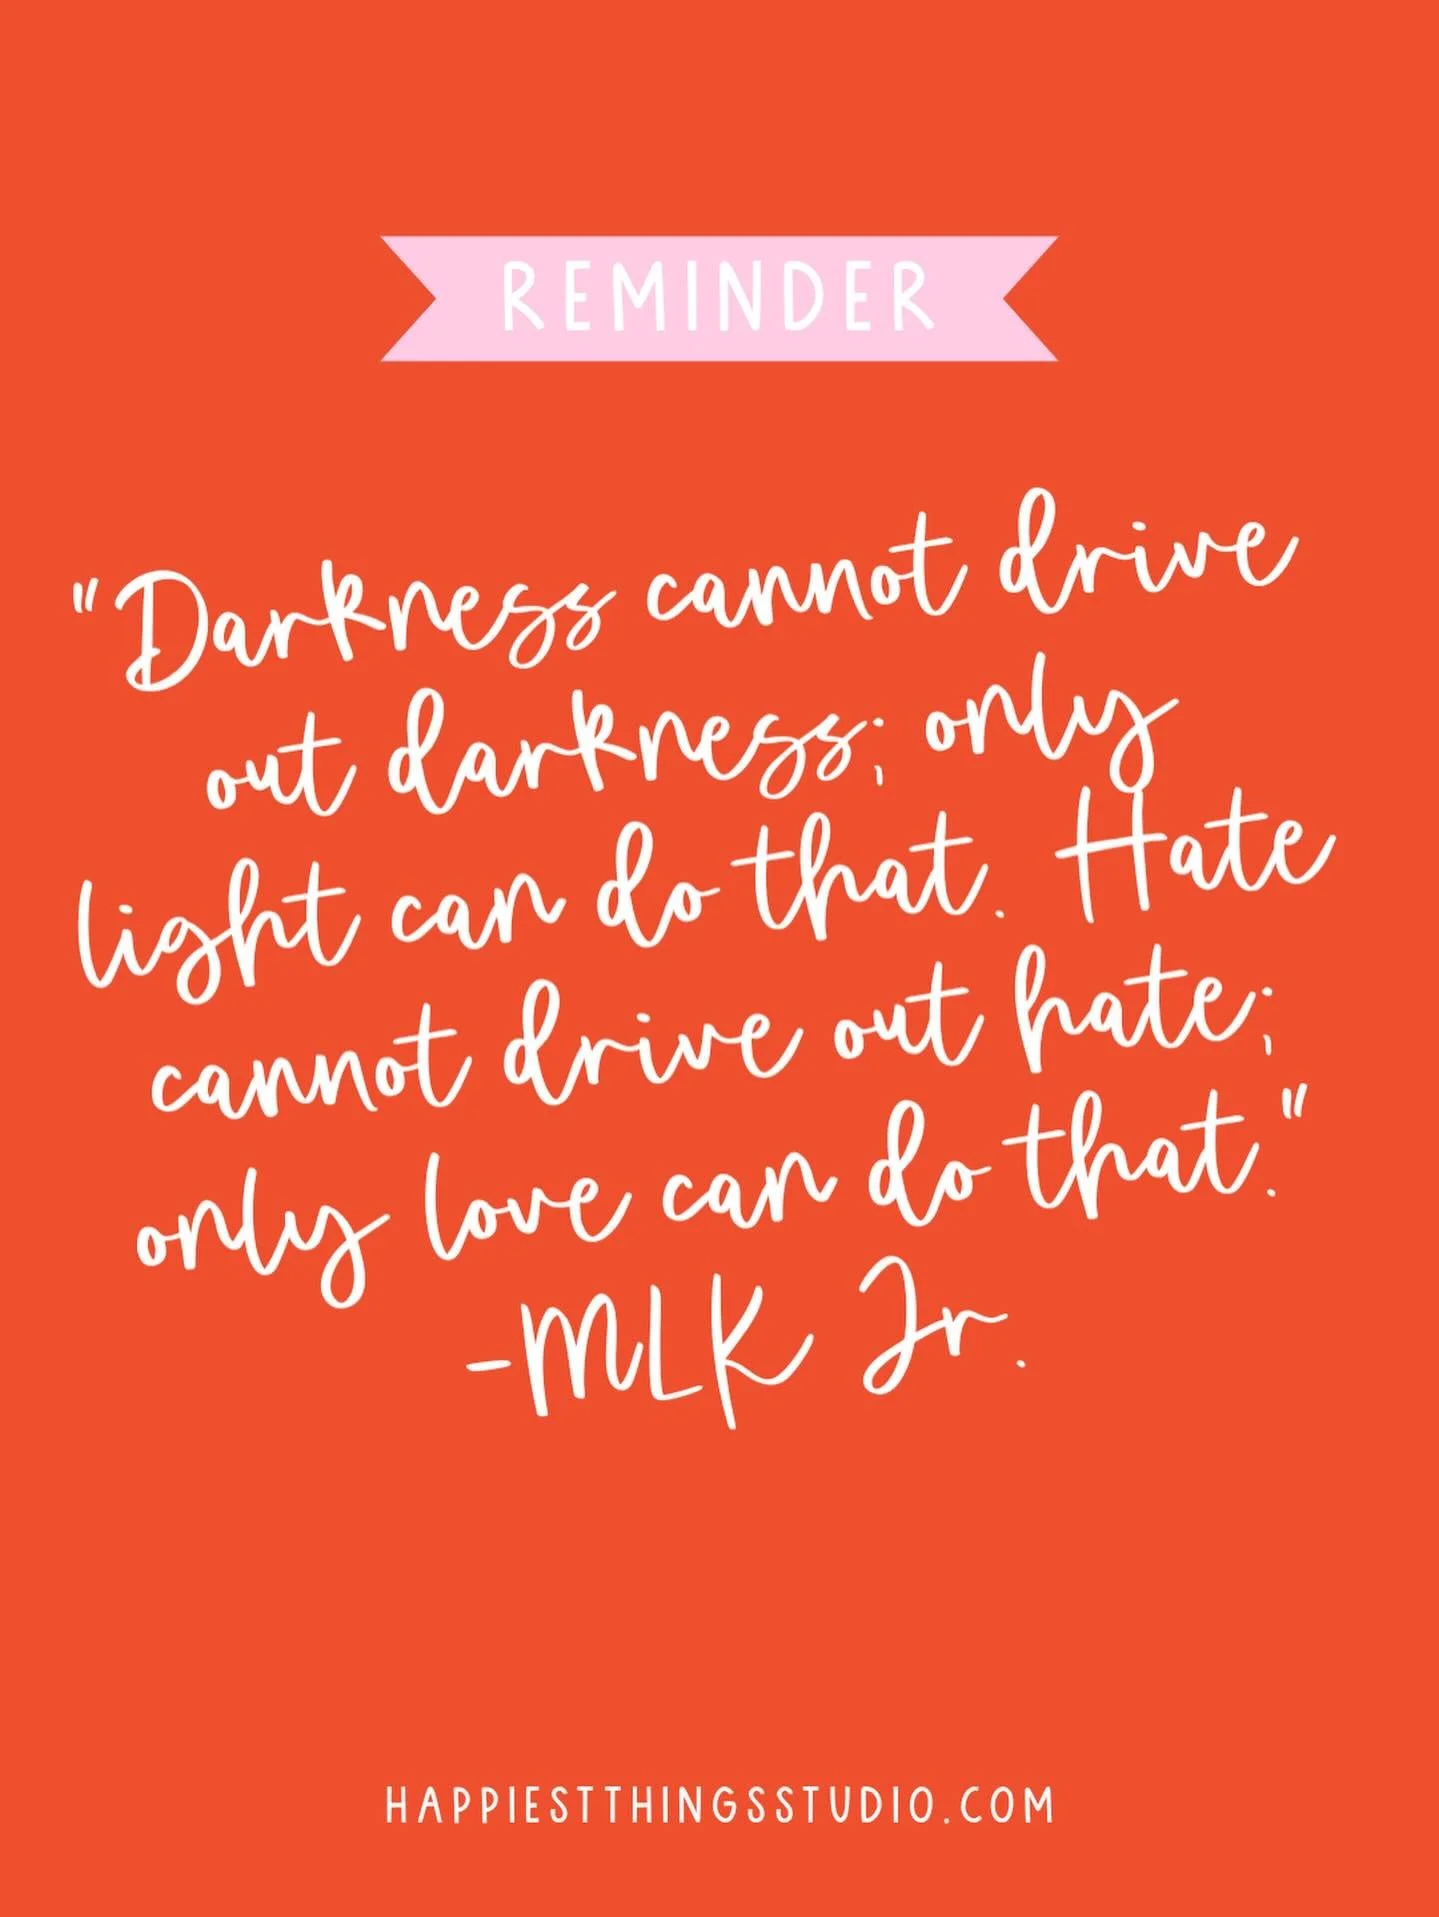 REMINDER
"Darkness cannot drive
out darkness; only
light can do that. Hate
cannot drive out hate;
only love can do that."
-MLK Jr.
HAPPIESTTHINGSSTUDIO.COM